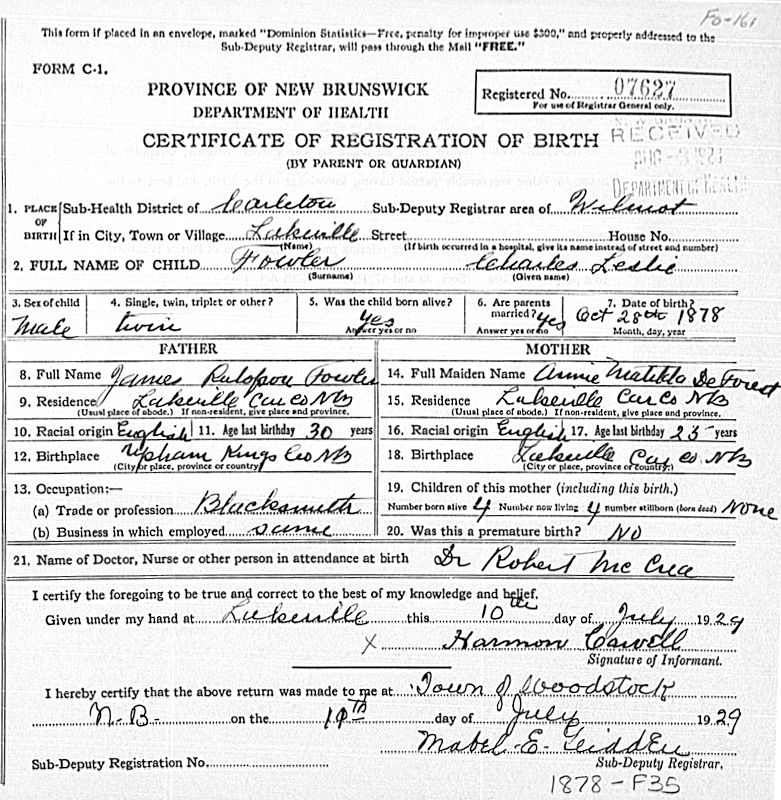 Fo-161
This form if placed in an envelope, marked "Dominion Statistics—Free, penalty for improper use $300," and properly addressed to the
Sub-Deputy Registrar, will pass through the Mail "FREE."
FORM C-1.
PROVINCE OF NEW BRUNSWICK
DEPARTMENT OF HEALTH
Registered No. 07627
For use of Registrar General only.
CERTIFICATE OF REGISTRATION OF BIRTH
(BY PARENT OR GUARDIAN)
RECEIVED
DEPARTMENT OF HEALTH
1. PLACE OF BIRTH Sub-Health District of Carleton Sub-Deputy Registrar area of Wilmot
If in City, Town or Village Lakeville Street House No.
(Name) (If birth occurred in a hospital, give its name instead of street and number)
2. FULL NAME OF CHILD Fowler Charles Leslie
(Surname) (Given name)
3. Sex of child 4. Single, twin, triplet or other? 5. Was the child born alive? 6. Are parents married? 7. Date of birth?
Male twin Yes Yes Oct 28th 1878
Answer yes or no Answer yes or no Month, day, year
FATHER MOTHER
8. Full Name James Fowler 14. Full Maiden Name Annie Matilda DeForest
9. Residence Lakeville Car Co NB 15. Residence Lakeville Car Co NB
(Usual place of abode.) If non-resident, give place and province. (Usual place of abode.) If non-resident, give place and province.
10. Racial origin English 11. Age last birthday 30 years 16. Racial origin English 17. Age last birthday 25 years
12. Birthplace Upham Kings Co NB 18. Birthplace Lakeville Car Co NB
(City or place, province or country) (City or place, province or country.)
13. Occupation:— 19. Children of this mother (including this birth.)
(a) Trade or profession Blacksmith Number born alive 4 Number now living 4 number stillborn (born dead) None
(b) Business in which employed same 20. Was this a premature birth? No
21. Name of Doctor, Nurse or other person in attendance at birth Dr Robert McCrea
I certify the foregoing to be true and correct to the best of my knowledge and belief.
Given under my hand at Lakeville this 10th day of July 1929
X Harmon
Signature of Informant.
I hereby certify that the above return was made to me at Town of Woodstock
N-B- on the 10th day of July 1929
Mabel-E-
Sub-Deputy Registration No. Sub-Deputy Registrar.
1878-F35